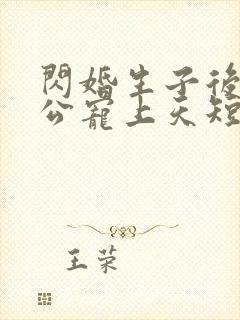 閃婚生子後
公寵上天短
王荣